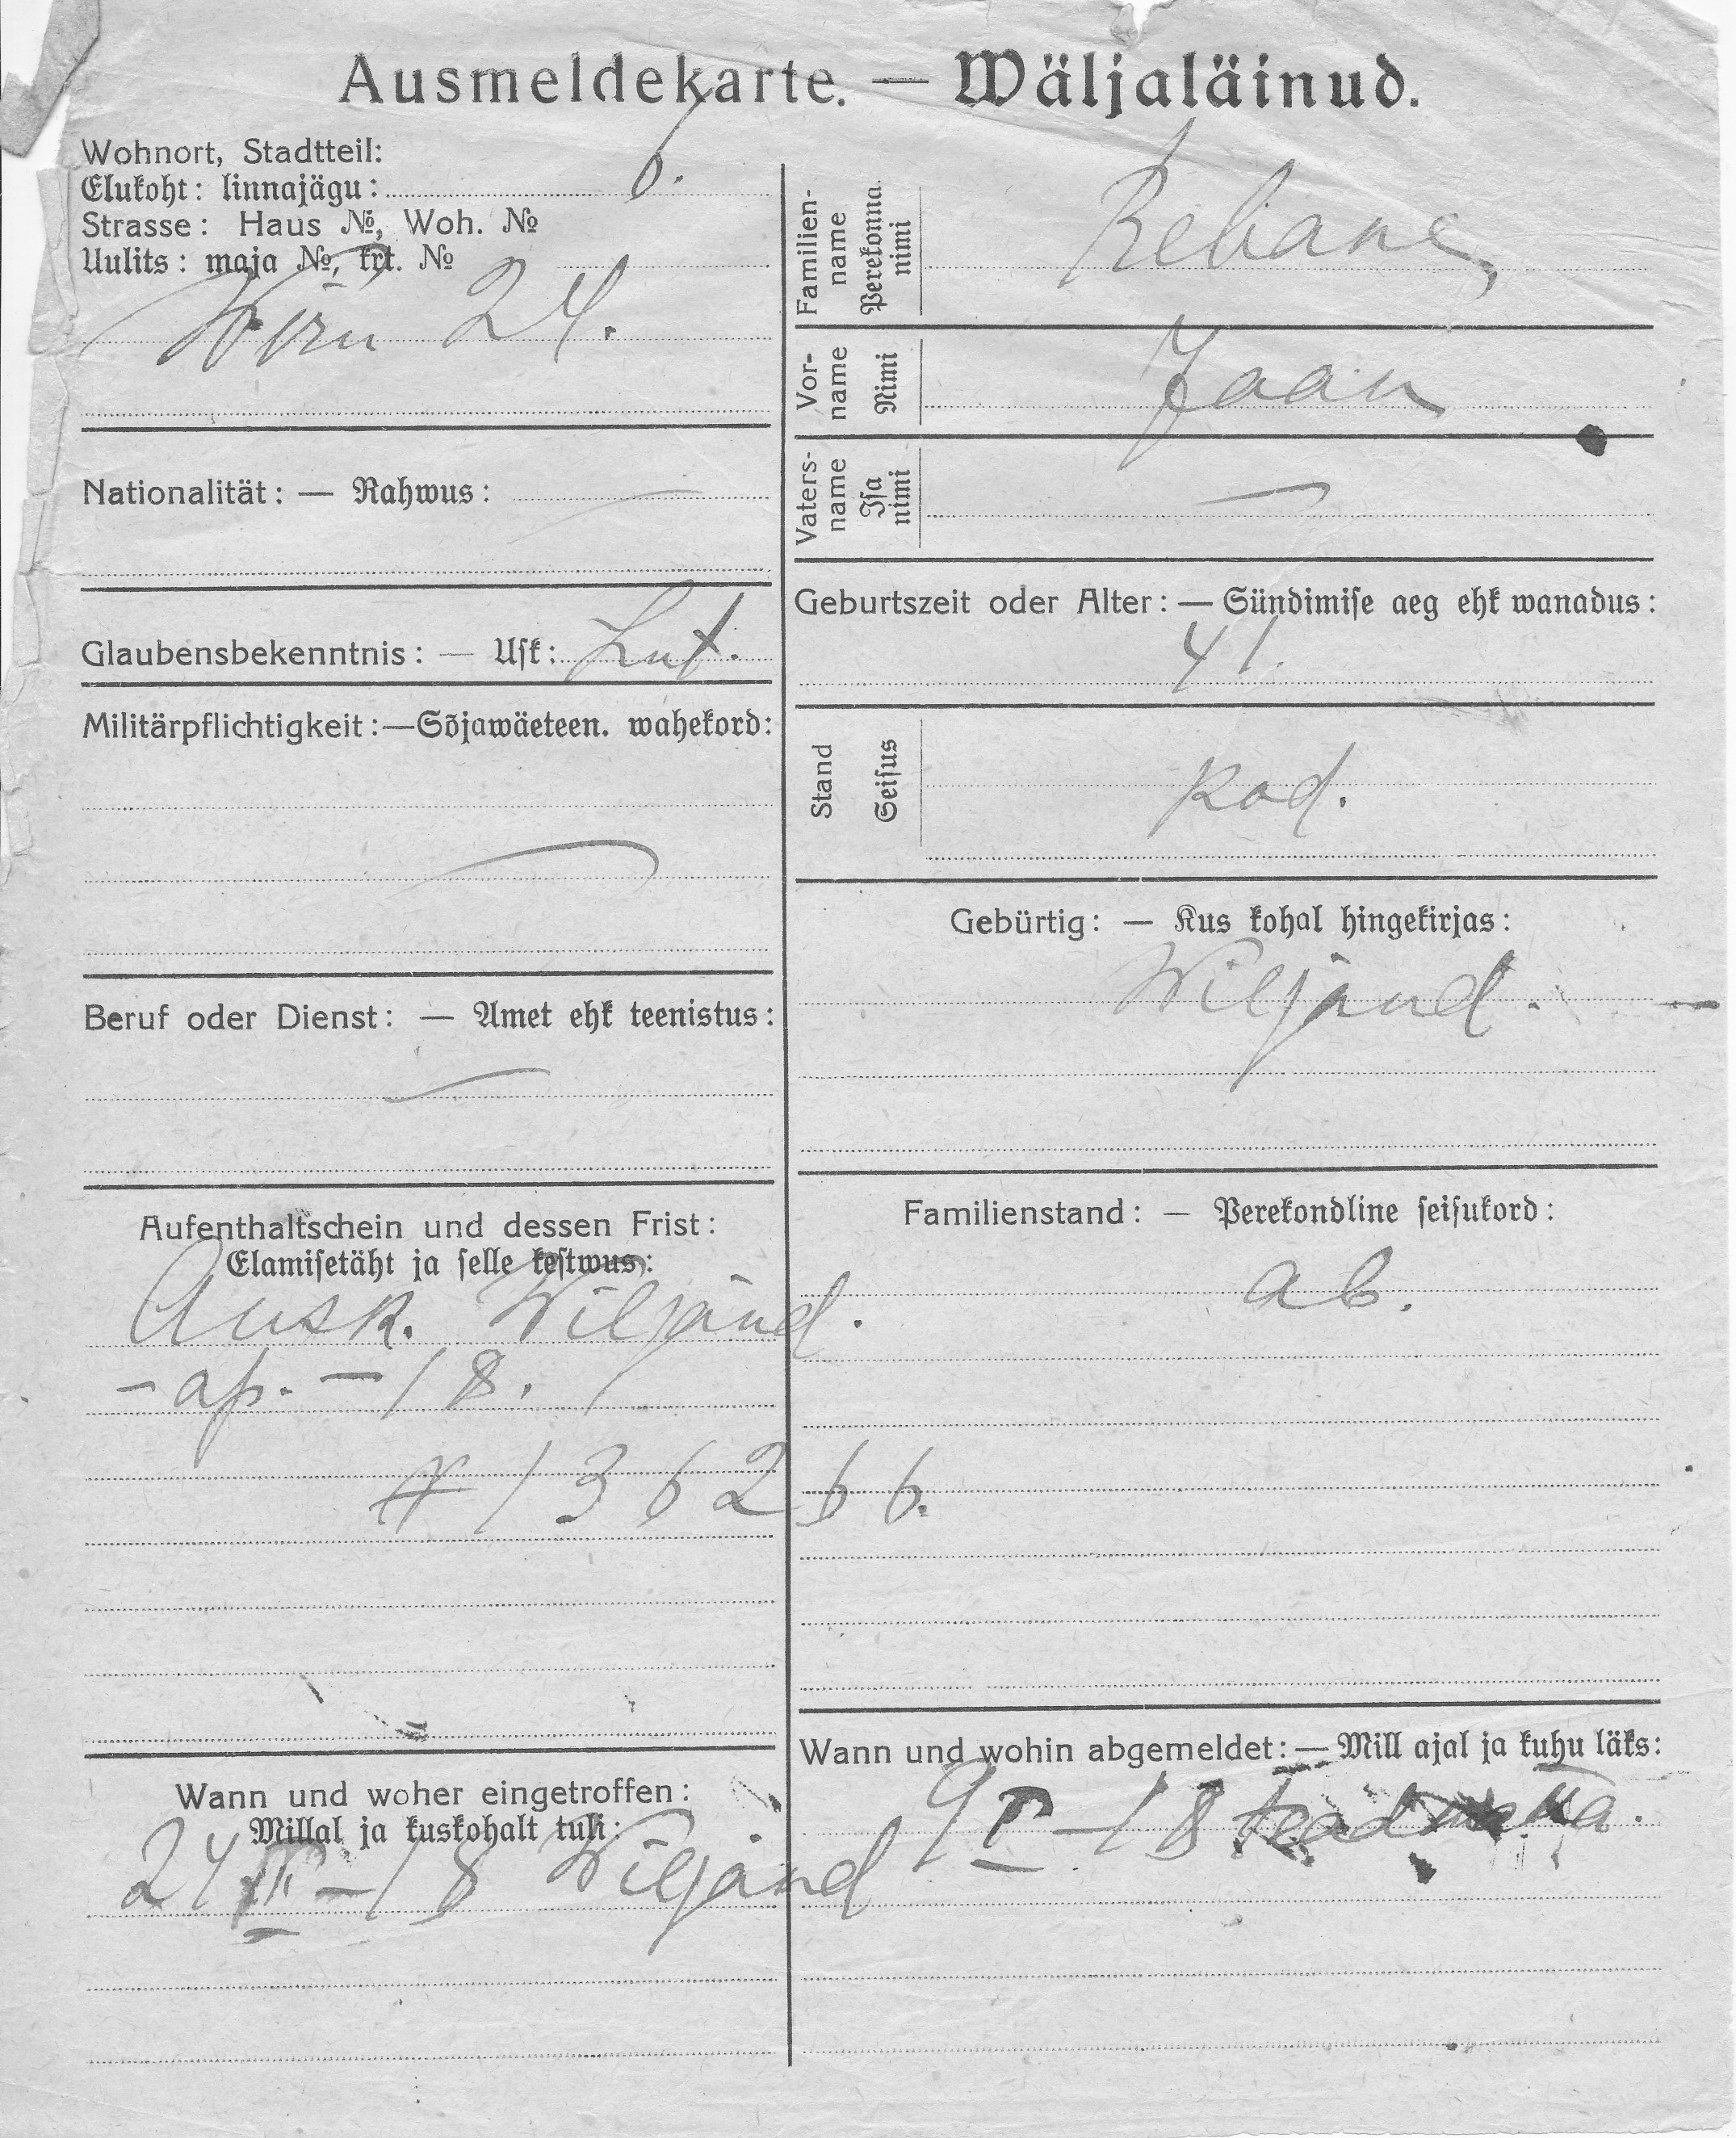 Ausmeldekarte. — Wäljaläinud.
Wohnort, Stadtteil:
Elukoht: linnajägu: 6.
Strasse: Haus №, Woh. №
Uulits: maja №, krt. №
Wiru 24.
Nationalität: — Rahwus: —
Glaubensbekenntnis: — Usk: Lut.
Militärpflichtigkeit:—Sõjawäeteen. wahekord:
—
Beruf oder Dienst: — Amet ehk teenistus:
—
Aufenthaltschein und dessen Frist:
Elamisetäht ja selle kestwus:
Ausk. Wiljand.
– ap. – 18.
# 136266.
Wann und woher eingetroffen:
Millal ja kuskohalt tuli:
24 – 18 Wiljand
Familien-name Perekonna nimi Rebane,
Vor-name Nimi Jaan
Vaters-name Isa nimi —
Geburtszeit oder Alter: — Sündimise aeg ehk wanadus:
41.
Stand Seisus kod.
Gebürtig: — Kus kohal hingekirjas:
Wiljand.
Familienstand: — Perekondline seisukord:
ab.
Wann und wohin abgemeldet: — Mill ajal ja kuhu läks:
– 18 teadmata.